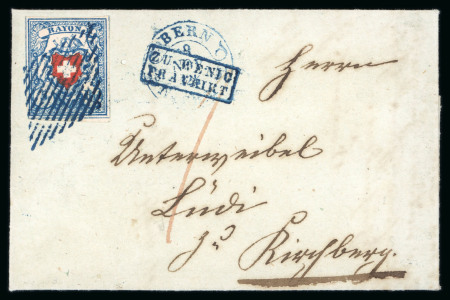 RAYON
BERN
ZU WENIG
FRANKIRT
Herrn
Unterweibel
Lüdi
zu Kirchberg.